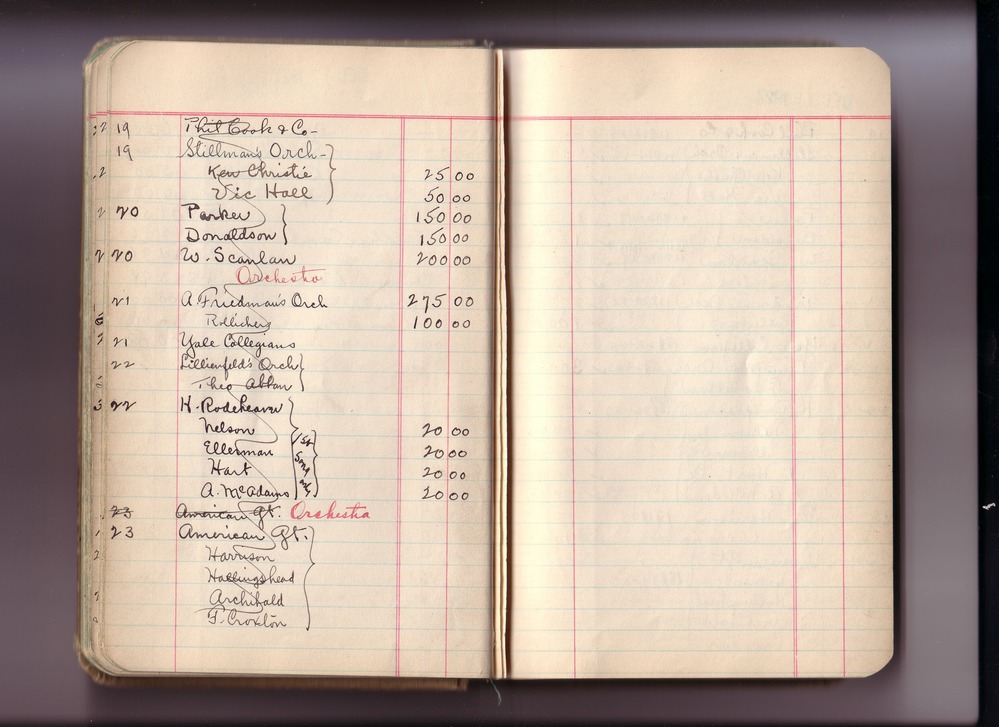 19 Phil Cook & Co-
19 Stillman's Orch-
Ken Christie 25 00
Vic Hall 50 00
20 Parker 150 00
Donaldson 150 00
20 W. Scanlan 200 00
Orchestra
21 A Friedman's Orch 275 00
Rollickers 100 00
21 Yale Collegians
22 Lillienfeld's Orch
Theo Alban
22 H. Rodeheaver
Nelson 20 00
Ellerman 20 00
Hart 20 00
A. McAdams 20 00
1st Song only
23 American Qt. Orchestra
23 American Qt.
Harrison
Hollingshead
Archibald
F. Croxton